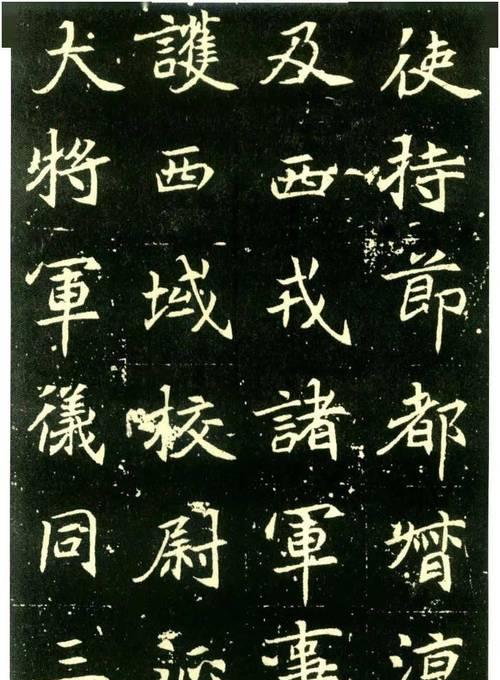 使持節都督
及西戎諸軍事
護西域校尉
大將軍儀同三